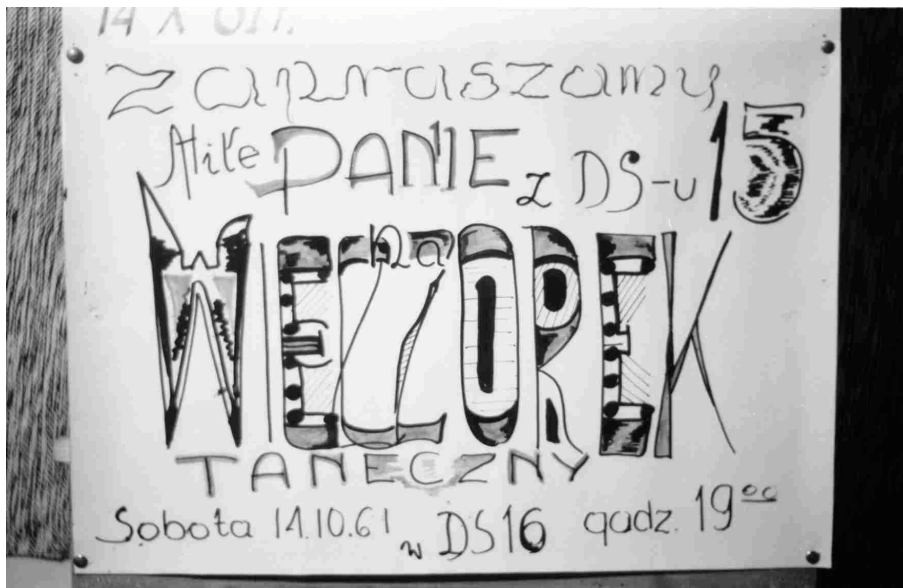 Zapraszamy
Miłe PANIE z DS-u 15
na
WIECZOREK
TANECZNY
Sobota 14.10.61 w DS16 godz. 19⁰⁰